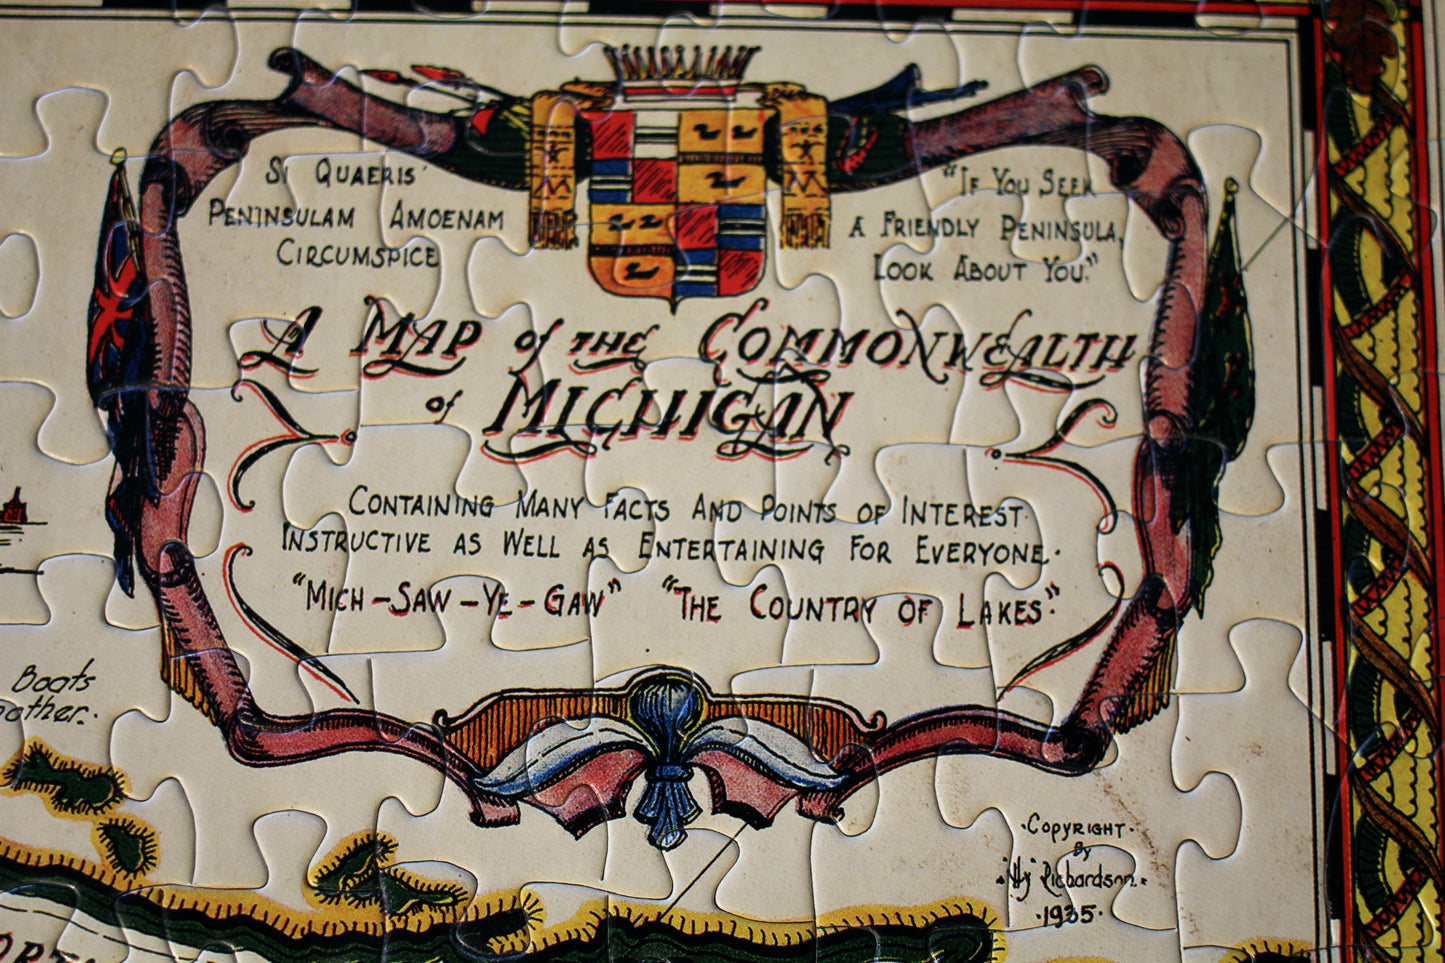 Si Quaeris
Peninsulam Amoenam
Circumspice
"If You Seek
A Friendly Peninsula,
Look About You."
A Map of the Commonwealth
of Michigan
Containing Many Facts And Points of Interest
Instructive as Well as Entertaining for Everyone.
"Mich-Saw-Ye-Gaw" "The Country of Lakes."
Boats
Copyright
By
Richardson
1935